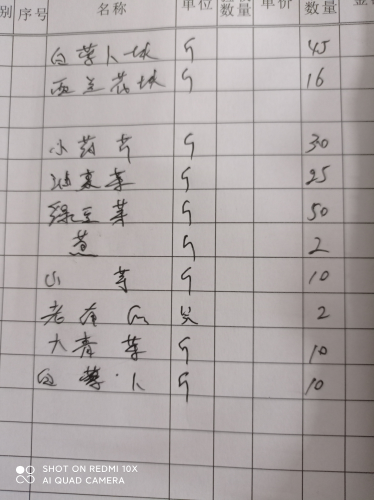 别 序号 名称 单位 数量 单价 数量
白萝卜块 斤 45
西兰花块 斤 16
小药芹 斤 30
油麦菜 斤 25
绿豆芽 斤 50
葱 斤 2
斤 10
老 2
大青菜 斤 10
白萝卜 斤 10
SHOT ON REDMI 10X
AI QUAD CAMERA